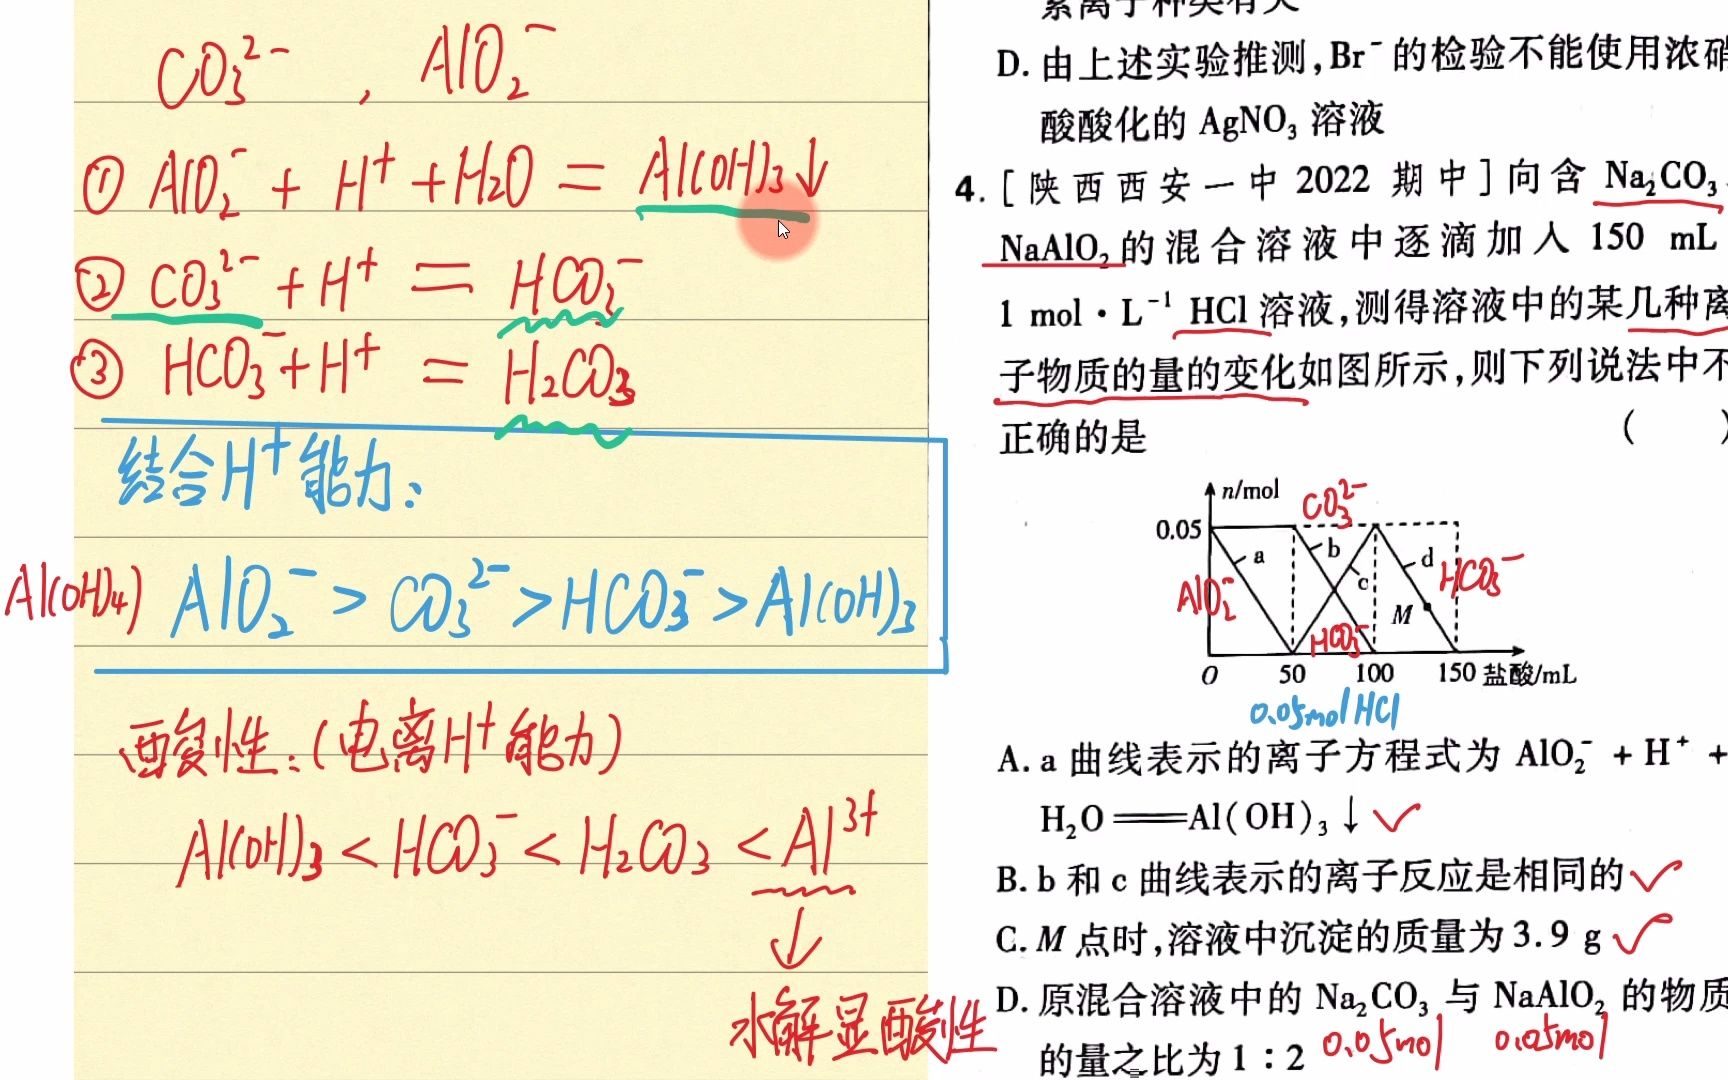 CO₃²⁻ , AlO₂⁻
① AlO₂⁻ + H⁺ + H₂O = Al(OH)₃↓
② CO₃²⁻ + H⁺ = HCO₃⁻
③ HCO₃⁻ + H⁺ = H₂CO₃
结合H⁺能力:
Al(OH)₄) AlO₂⁻ > CO₃²⁻ > HCO₃⁻ > Al(OH)₃
酸性:(电离H⁺能力)
Al(OH)₃ < HCO₃⁻ < H₂CO₃ < Al³⁺
↓
水解显酸性
累离子种类有关
D. 由上述实验推测,Br⁻的检验不能使用浓硝
酸酸化的 AgNO₃ 溶液
4. [陕西西安一中 2022 期中]向含 Na₂CO₃、
NaAlO₂的混合溶液中逐滴加入 150 mL
1 mol·L⁻¹ HCl 溶液,测得溶液中的某几种离
子物质的量的变化如图所示,则下列说法中不
正确的是 ( )
n/mol
CO₃²⁻
0.05
a
b
c
d
AlO₂⁻
HCO₃⁻
M
HCO₃⁻
O 50 100 150 盐酸/mL
0.05mol HCl
A. a 曲线表示的离子方程式为 AlO₂⁻ + H⁺ +
H₂O══Al(OH)₃↓ ✓
B. b 和 c 曲线表示的离子反应是相同的 ✓
C. M 点时,溶液中沉淀的质量为 3.9 g ✓
D. 原混合溶液中的 Na₂CO₃ 与 NaAlO₂ 的物质
的量之比为 1∶2 0.05mol 0.05mol